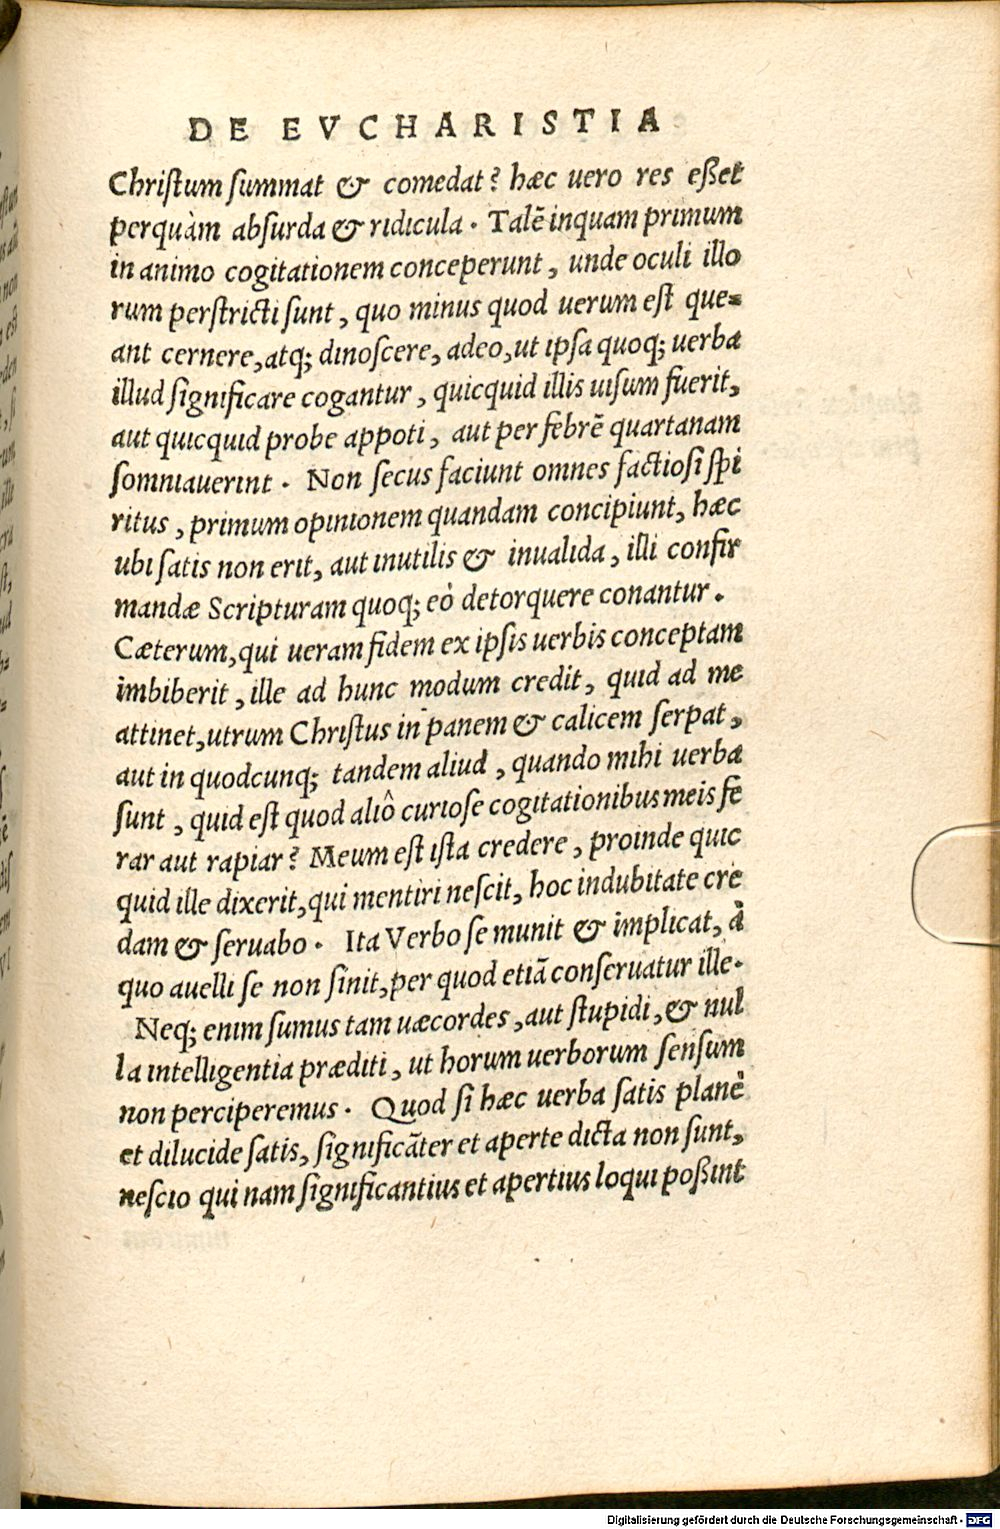 DE EVCHARISTIA
Chriſtum ſummat & comedat? hæc uero res eßet
perquàm abſurda & ridicula. Talē inquam primum
in animo cogitationem conceperunt, unde oculi illo
rum perſtricti ſunt, quo minus quod uerum eſt que=
ant cernere, atq; dinoſcere, adeo, ut ipſa quoq; uerba
illud ſignificare cogantur, quicquid illis uiſum fuerit,
aut quicquid probe appoti, aut per febrē quartanam
ſomniauerint. Non ſecus faciunt omnes factioſi ſpi
ritus, primum opinionem quandam concipiunt, hæc
ubi ſatis non erit, aut inutilis & inualida, illi confir
mandæ Scripturam quoq; eò detorquere conantur.
Cæterum, qui ueram fidem ex ipſis uerbis conceptam
imbiberit, ille ad hunc modum credit, quid ad me
attinet, utrum Chriſtus in panem & calicem ſerpat,
aut in quodcunq; tandem aliud, quando mihi uerba
ſunt, quid eſt quod aliô curioſe cogitationibus meis fe
rar aut rapiar? Meum eſt iſta credere, proinde quic
quid ille dixerit, qui mentiri neſcit, hoc indubitate cre
dam & ſeruabo. Ita Verbo ſe munit & implicat, à
quo auelli ſe non ſinit, per quod etiā conſeruatur ille.
Neq; enim ſumus tam uæcordes, aut ſtupidi, & nul
la intelligentia præditi, ut horum uerborum ſenſum
non perciperemus. Quod ſi hæc uerba ſatis planè
et dilucide ſatis, ſignificāter et aperte dicta non ſunt,
neſcio qui nam ſignificantius et apertius loqui poßint
Digitalisierung gefördert durch die Deutsche Forschungsgemeinschaft - DFG